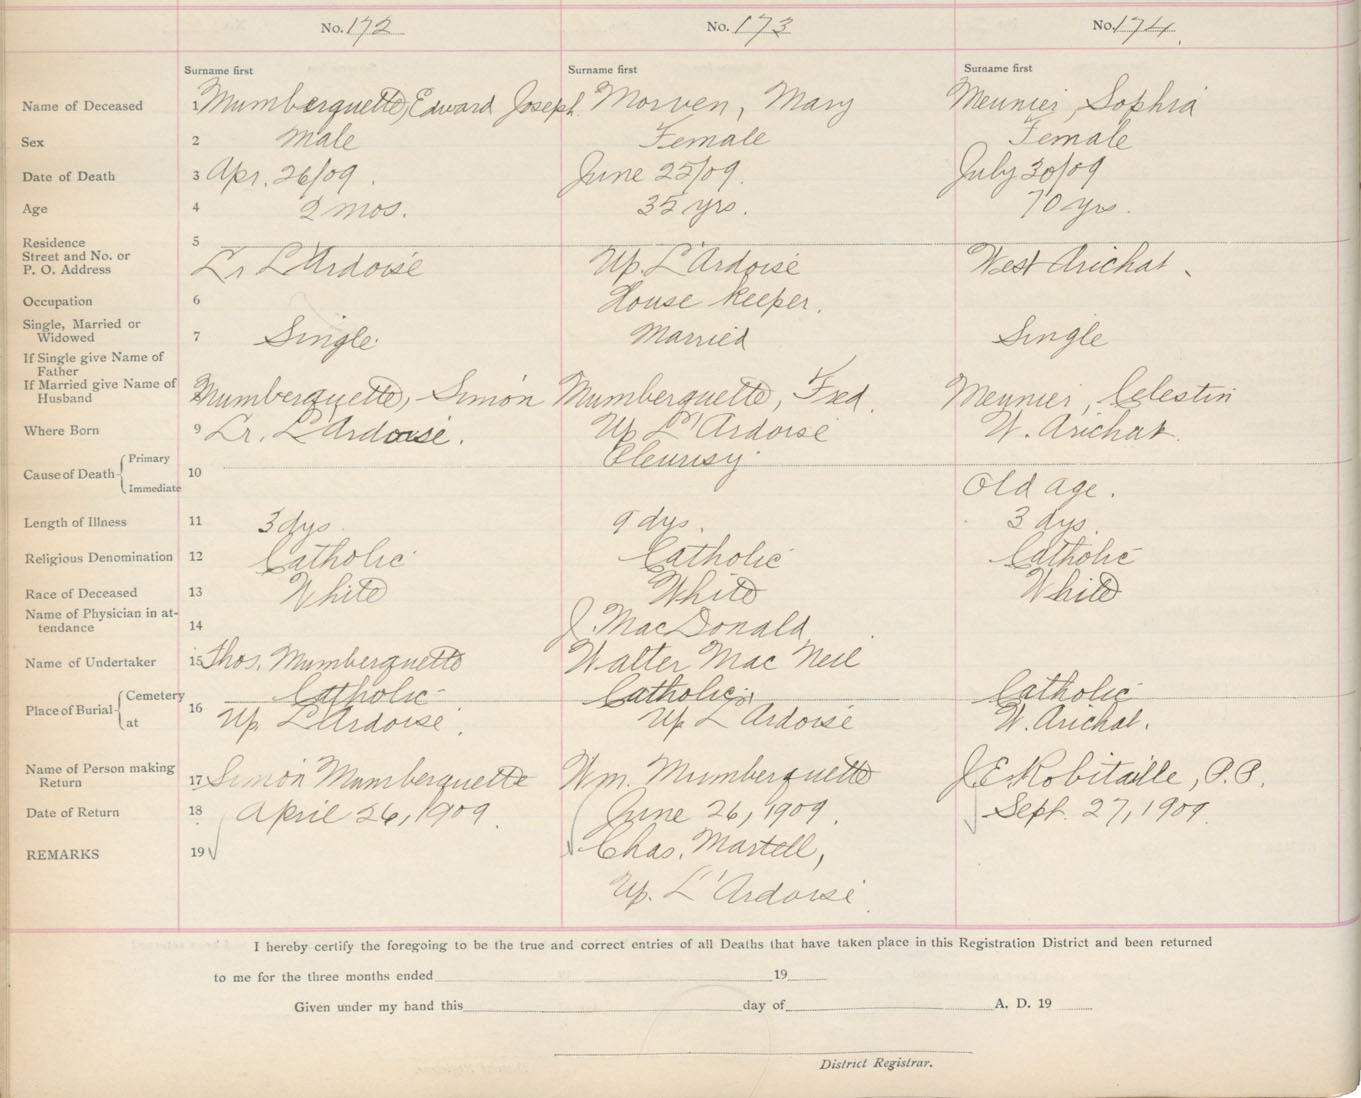 No. 172 No. 173 No. 174
Surname first Surname first Surname first
Name of Deceased 1 Mumberquette, Edward Joseph Morven, Mary Meunier, Sophia
Sex 2 Male Female Female
Date of Death 3 Apr. 26/09. June 25/09. July 30/09
Age 4 2 mos. 35 yrs. 70 yrs.
Residence 5
Street and No. or
P. O. Address Lr L'Ardoise Up. L'Ardoise West Arichat
Occupation 6 House keeper.
Single, Married or
Widowed 7 Single. Married Single
If Single give Name of
Father
If Married give Name of
Husband Mumberquette, Simon Mumberquette, Fred. Meunier, Celestin
Where Born 9 Lr. L'Ardoise. Up L'Ardoise W. Arichat.
Cause of Death Primary 10 Pleurisy
Immediate Old age.
Length of Illness 11 3 dys. 9 dys. 3 dys.
Religious Denomination 12 Catholic Catholic Catholic
Race of Deceased 13 White White White
Name of Physician in at-
tendance 14 J. MacDonald
Name of Undertaker 15 Thos. Mumberquette Walter Mac Neil
Place of Burial Cemetery 16 Catholic Catholic Catholic
at Up. L'Ardoise. Up L'Ardoise W. Arichat.
Name of Person making
Return 17 Simon Mumberquette Wm. Mumberquette J E Robitaille, P.P.
Date of Return 18 April 26, 1909. June 26, 1909. Sept. 27, 1909.
REMARKS 19 Chas. Martell,
Up. L'Ardoise
I hereby certify the foregoing to be the true and correct entries of all Deaths that have taken place in this Registration District and been returned
to me for the three months ended 19
Given under my hand this day of A. D. 19
District Registrar.